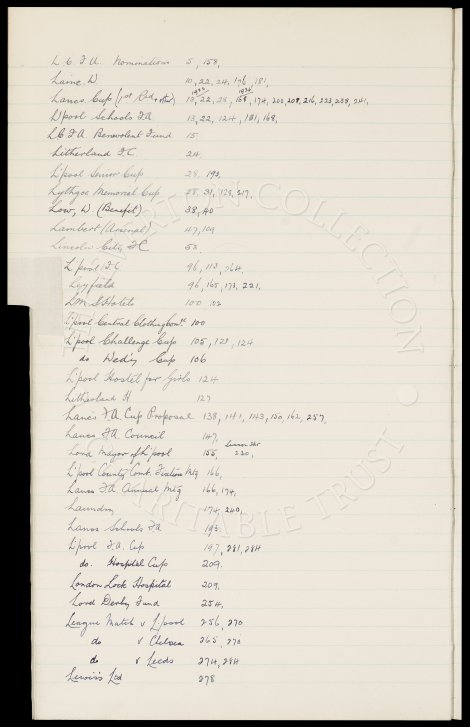 L. C. F. A. Nominations 5, 158,
Laine, W 10, 22, 24, 176, 181,
Lancs. Cup (1st Rd, 10, 22, 28, 158, 174, 200, 208, 216, 223, 238, 241,
L'pool Schools F.A. 13, 22, 124, 181, 168,
L.C.F.A. Benevolent Fund 15.
Litherland F.C. 24.
L'pool Senior Cup 28, 192,
Lythgoe Memorial Cup 28, 31, 129, 217,
Low, W (Benefit) 38, 40
Lambert (Arsenal), 47, 109
Lincoln City F.C 58.
L'pool F.C 96, 113, 264,
Leyfield 96, 165, 173, 221,
LMS Hotels 100
L'pool Central Clothing Comtt 100
L'pool Challenge Cup 105, 123, 124
do Wed'y Cup 106
L'pool Hostel for Girls 124
Litherland H 127
Lancs FA Cup Proposal 138, 141, 143, 150, 162, 257,
Lancs. FA. Council 147,
Lord Mayor of L'pool 155, 230,
L'pool County Comb. Fixture Mtg 166,
Lancs FA Annual Mtg 166, 174,
Laundry 174, 240,
Lancs Schools FA 193.
L'pool F.A. Cup 197, 281, 284
do. Hospital Cup 209.
London Lock Hospital 209.
Lord Derby Fund 254,
League Match v L'pool 256, 270
do v Chelsea 265, 270
do v Leeds 274, 284
Lewis's Ltd 278
COLLECTION
CHARITABLE TRUST